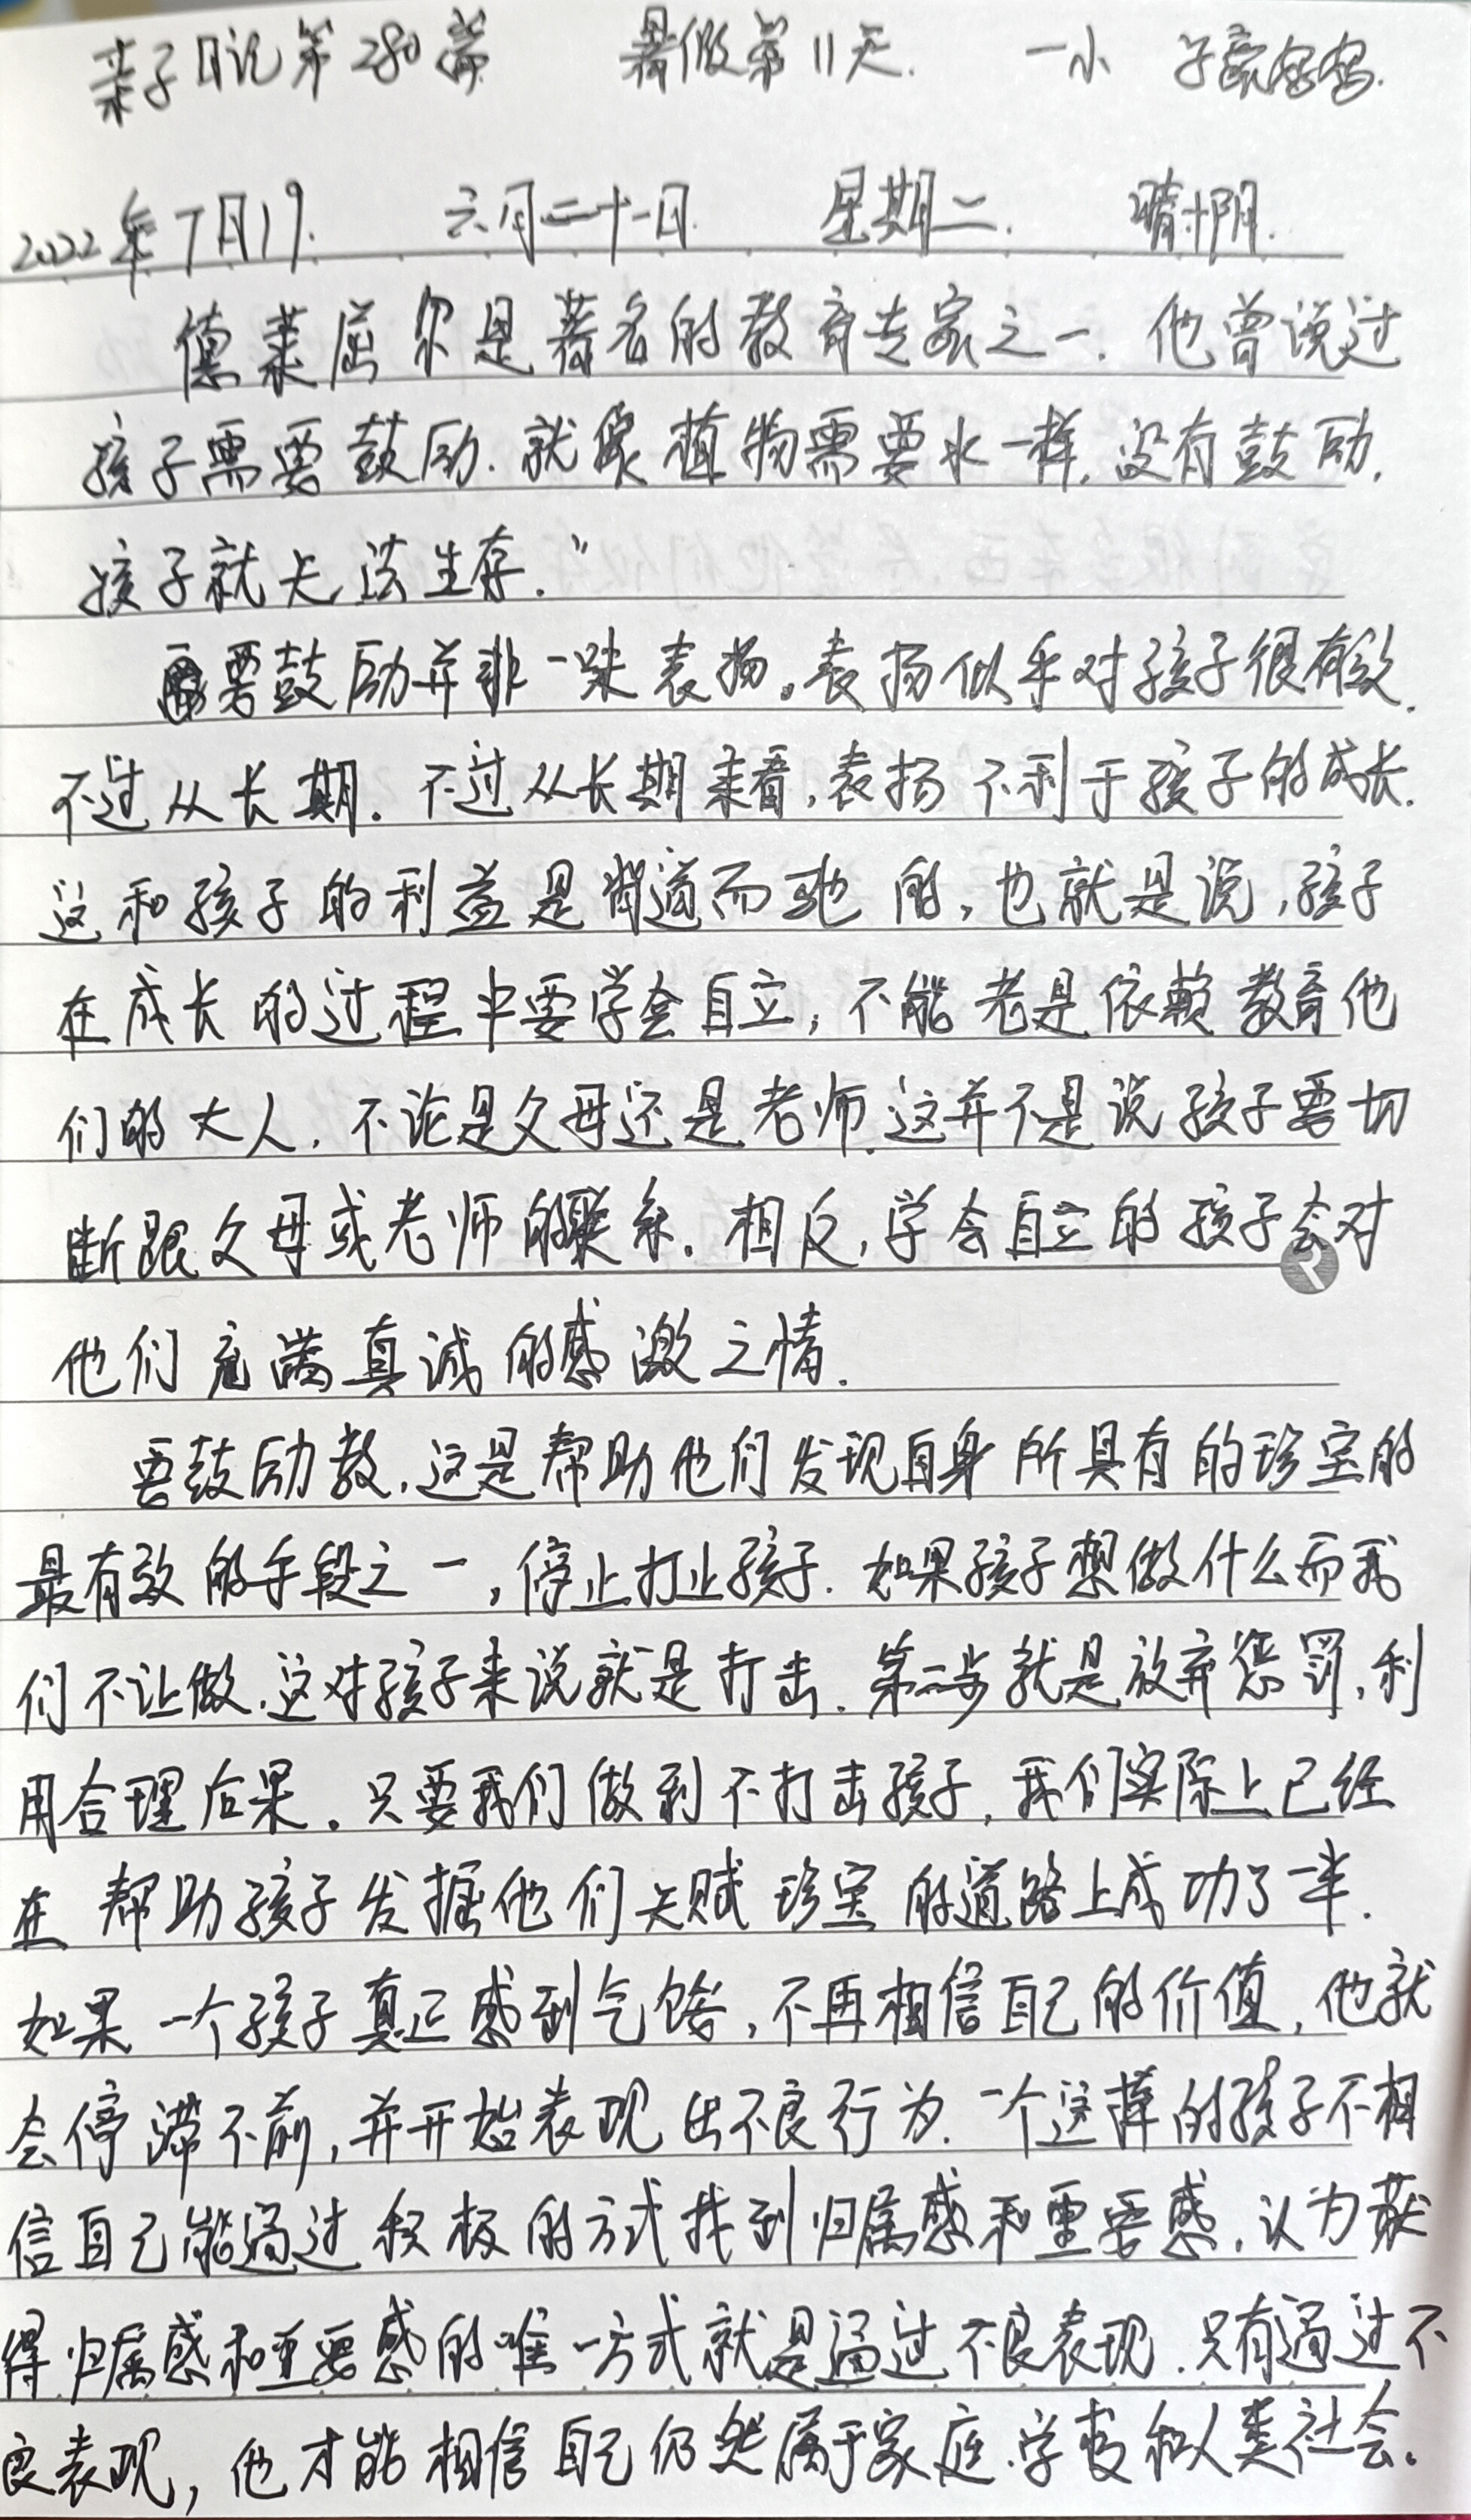 亲子日记第280篇 暑假第11天. 一小 子豪妈妈.
2022年7月19. 六月二十一日 星期二. 晴十阴.
德莱屈尔是著名的教育专家之一. 他曾说过
孩子需要鼓励. 就像植物需要水一样, 没有鼓励,
孩子就无法生存."
要鼓励并非一味表扬。表扬似乎对孩子很有效.
不过从长期. 不过从长期来看, 表扬不利于孩子的成长.
这和孩子的利益是背道而驰的, 也就是说, 孩子
在成长的过程中要学会自立, 不能老是依赖教育他
们的大人, 不论是父母还是老师. 这并不是说孩子要切
断跟父母或老师的联系. 相反, 学会自立的孩子会对
他们充满真诚的感激之情.
要鼓励教, 这是帮助他们发现自身所具有的珍宝的
最有效的手段之一, 停止打止孩子. 如果孩子想做什么而我
们不让做, 这对孩子来说就是打击. 第一步就是放弃惩罚, 利
用合理后果。只要我们做到不打击孩子, 我们实际上已经
在帮助孩子发掘他们天赋珍宝的道路上成功了一半.
如果一个孩子真正感到气馁, 不再相信自己的价值, 他就
会停滞不前, 并开始表现出不良行为. 一个这样的孩子不相
信自己能通过积极的方式找到归属感和重要感, 认为获
得归属感和重要感的唯一方式就是通过不良表现. 只有通过不
良表现, 他才能相信自己仍然属于家庭. 学校和人类社会。